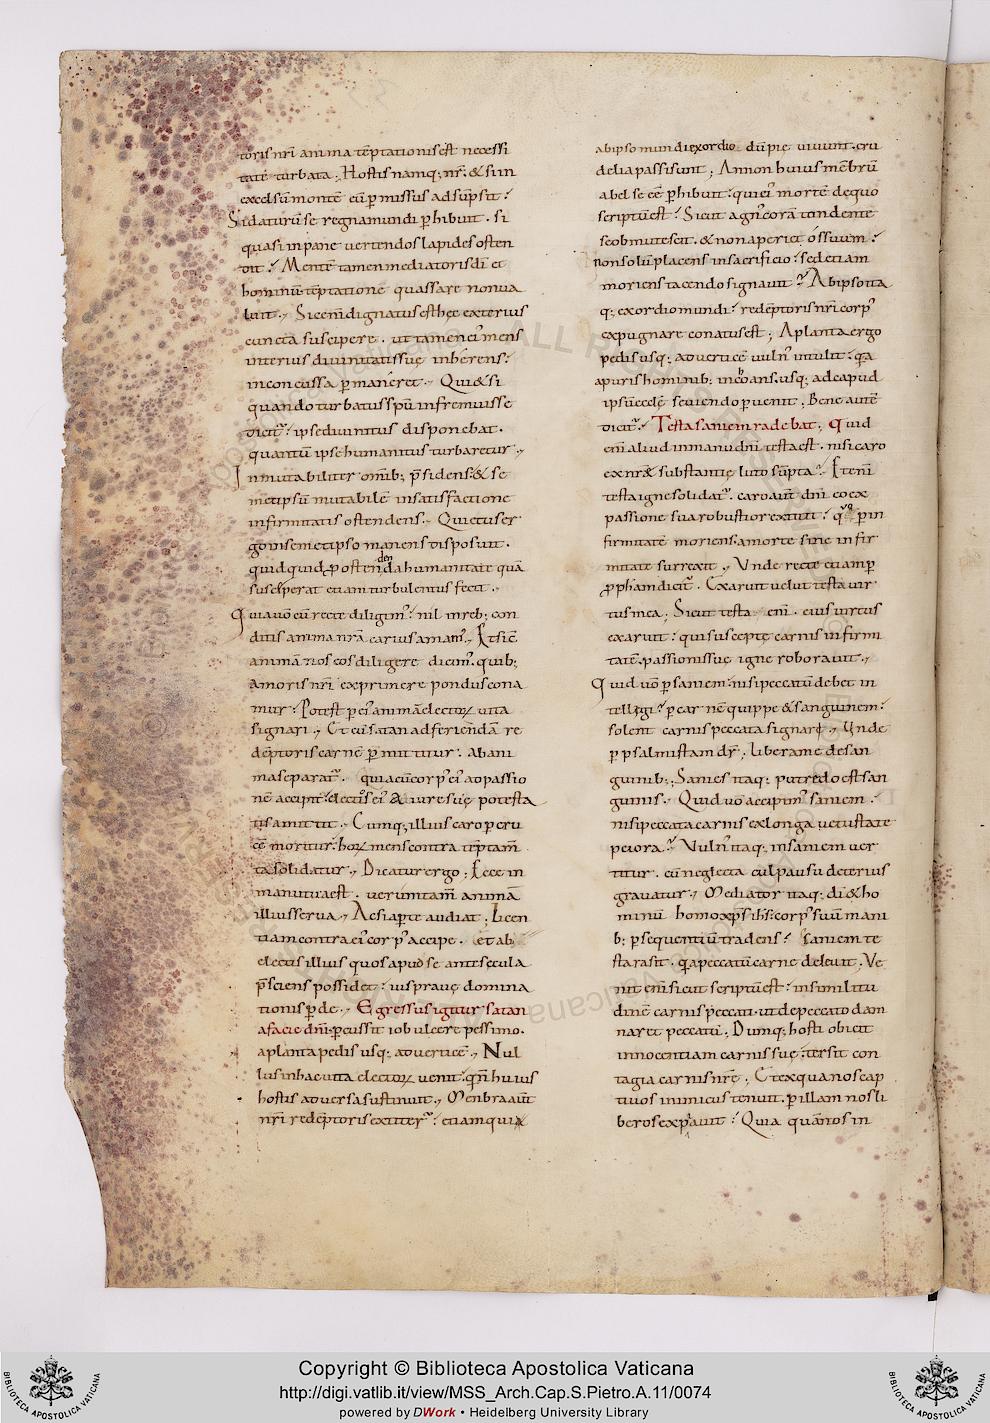 toris nr̄i anima tēptationis est necessi
tate turbata; Hostis namq; nr̄. & si in
excelsū montē eū p̱missus adsūpsit?
Si daturū se regna mundi p̱hibuit. si
quasi in pane vertendos lapides osten
dit? Mentē tamen mediatoris dī et
hominū tēptatione quassare non va
luit. Sic enī dignatus est hęc exterius
cuncta suscipere. ut tamen ei᾽ mens
interius divinitati suę inherens?
inconcussa p̱maneret. Qui & si
quando turbatus spū infremuisse
dicit᾽? ipse divinitus disponebat.
quantū ipse humanitus turbaretur.
Inmutabiliter omīb; p̄sidens. & se
metipsū mutabilē in satisfactione
infirmitatis ostendens. Quietus er
go in semetipso manens disposuit.
quidquid p̱ ostendenda humanitate quā
susceperat etiam turbulentus fecit.
Quia vō cū recte diligim᾽? nil in reb; con
ditis anima nr̄a carius amam᾽. Et sic
animā nos eos diligere dicim᾽. quib;
amoris nr̄i exprimere pondus cona
mur? Potest p̱ ei᾽ animā electoꝝ vita
signari. Et cū satan ad feriendā re
dēptoris carnē p̱mittitur. ab ani
ma separat᾽. quia cū corp᾽ ei᾽ ad passio
nē accipit? electos ei᾽ a iure suę potesta
tis amittit. Cumq; illius caro p̱ cru
cē moritur? hoꝝ mens contra tēptam̄
ta solidatur. Dicatur ergo; Ecce in
manu tua est. verūntam̄ animā
illius serva. Ac si ap̱te audiat; Licen
tiam contra ei᾽ corp᾽ accipe. et ab
electis illius quos apud se ante secula
p̄sciens possidet? ius pravę domina
tionis p̱de. Egressus igitur satan
a facie dn̄i. p̱cussit iob ulcere pessimo.
a planta pedis usq; ad verticē. Nul
lus in hac vita electoꝝ venit. qn̄ huius
hostis adversa sustinuit. Menbra aūt
nr̄i redēptoris extiter᾽? etiam qui
ab ipso mundi exordio dū pie vivunt. cru
delia passi sunt; An non huius mēbrū
abel se eē p̱hibuit? qui ei᾽ mortē de quo
scriptū est? Sicut agn᾽ corā tondente
se obmutescit. & non aperiet os suum?
non solū placens in sacrificio? sed etiam
moriens tacendo signavit? Ab ipso ita
q; exordio mundi? redēptoris nr̄i corp᾽
expugnare conatus est; A planta ergo
pedis usq; ad verticē vuln᾽ intulit. q̄a
a puris hominib; inchoans. usq; ad capud
ipsū ecclę seviendo p̱venit; Bene autē
dicit᾽? Testa saniem radebat; Quid
enī aliud in manu dn̄i testa est. nisi caro
ex nr̄ę substantię luto sūpta? Etenī
testa igne solidat᾽. caro aūt dn̄i eo ex
passione sua robustior extitit? quo p̱ in
firmitatē moriens. a morte sine infir
mitate surrexit. Unde recte etiam p̱
p̱pham dicit᾽. Exaruit velut testa vir
tus mea; Sicut testa enī. eius virtus
exaruit? qui susceptę carnis infirmi
tatē. passionis suę igne roboravit.
Quid vō p̱ saniem. nisi peccatū debet in
tellegi? p̱ carnē quippe & sanguinem?
solent carnis peccata signari. Unde
p̱ psalmistam dr̄; Libera me de san
guinib; Sanies itaq; putredo est san
guinis. Quid vō accipim᾽ saniem?
nisi peccata carnis ex longa vetustate
peiora? Vuln᾽ itaq; in saniem ver
titur. cū neglecta culpa usu deterius
gravatur. Mediator itaq; dī & ho
minū homo xp̄s ih̄s. corp᾽ suū mani
b; p̱sequentiū tradens? saniem te
sta rasit. q̄a peccatū carne delevit. Ve
nit enī sicut scriptū est? in similitu
dinē carnis peccati. ut de peccato dam
naret peccatū; Dumq; hosti obicit
innocentiam carnis suę. tersit con
tagia carnis nr̄ę; Et ex qua nos cap
tivos inimicus tenuit. p̱ illam nos li
beros expiavit? Quia quā nos in
Copyright © Biblioteca Apostolica Vaticana
http://digi.vatlib.it/view/MSS_Arch.Cap.S.Pietro.A.11/0074
powered by DWork • Heidelberg University Library
BIBLIOTECA APOSTOLICA VATICANA
BIBLIOTECA APOSTOLICA VATICANA